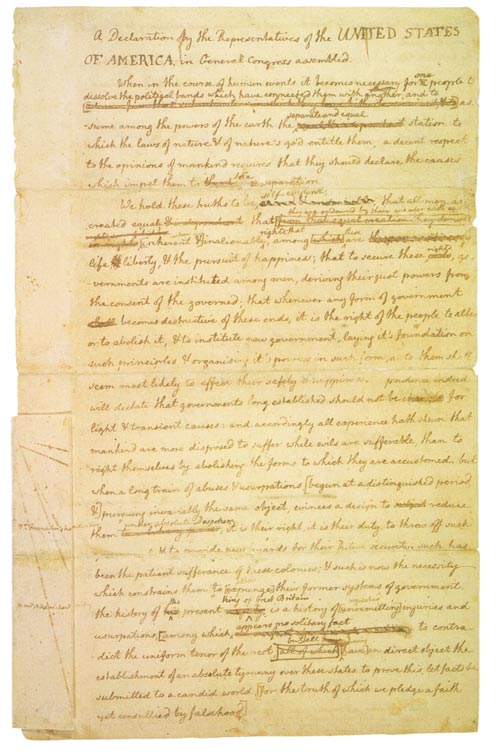 A Declaration by the Representatives of the UNITED STATES
OF AMERICA, in General Congress assembled.
When in the course of human events it becomes necessary for one people to
dissolve the political bands which have connected them with another, and to
as-
separate and equal
sume among the powers of the earth the station to
which the laws of nature & of nature's god entitle them, a decent respect
to the opinions of mankind requires that they should declare the causes
which impel them to the separation.
self-evident
We hold these truths to be that all men are
they are endowed by their creator with
created equal that
rights; that these
inherent & inalienable among which are
life liberty, & the pursuit of happiness; that to secure these rights, go-
vernments are instituted among men, deriving their just powers from
the consent of the governed; that whenever any form of government
becomes destructive of these ends, it is the right of the people to alter
or to abolish it, & to institute new government, laying it's foundation on
such principles & organising it's powers in such form, as to them shall
seem most likely to effect their safety & happiness. prudence indeed
will dictate that governments long established should not be changed for
light & transient causes: and accordingly all experience hath shewn that
mankind are more disposed to suffer while evils are sufferable, than to
right themselves by abolishing the forms to which they are accustomed. but
when a long train of abuses & usurpations [begun at a distinguished period
&] pursuing invariably the same object, evinces a design to reduce
under absolute Despotism
them it is their right, it is their duty, to throw off such
& to provide new guards for their future security. such has
been the patient sufferance of these colonies; & such is now the necessity
which constrains them to [expunge] their former systems of government.
the king of Great Britain
the history of present is a history of [unremitting] injuries and
appears no solitary fact
usurpations, [among which to contra-
but all
dict the uniform tenor of the rest all of which have] in direct object the
establishment of an absolute tyranny over these states. to prove this, let facts be
submitted to a candid world, [for the truth of which we pledge a faith
yet unsullied by falsehood]